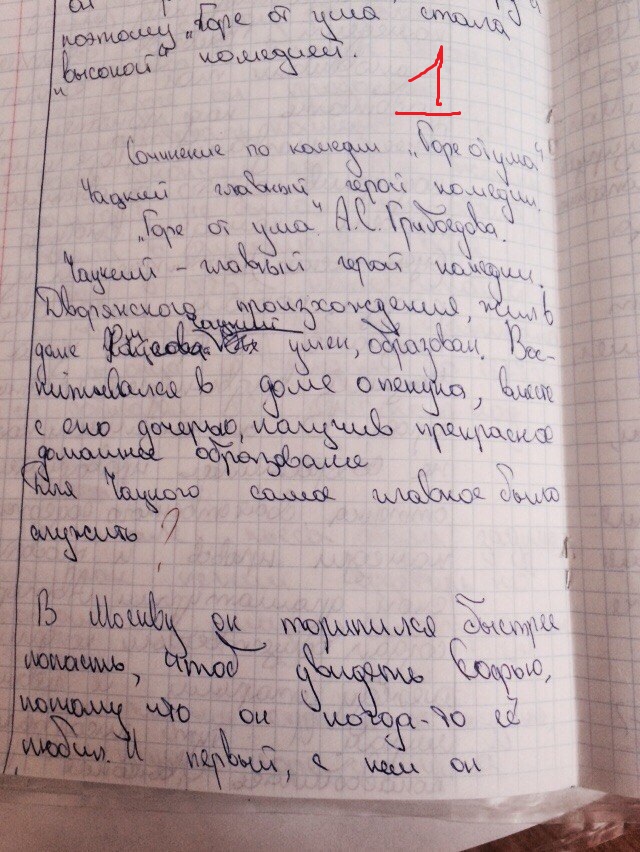 поэтому „Горе от ума стала
„высокой“ комедией.
1
Сочинение по комедии „Горе от ума“
Чацкий главный герой комедии.
„Горе от ума“ А.С. Грибоедова.
Чацкий – главный герой комедии.
Дворянского произхождения, жил в
доме Фамусова. Чацкий умен, образован. Вос-
питывался в доме опекуна, вместе
с его дочерью, получив прекрасное
домашнее образование
Для Чацкого самое главное было
служить ?
В Москву он торопился быстрее
попасть, чтоб увидеть Софью,
потому что он когда-то её
любил. И первый, с кем он